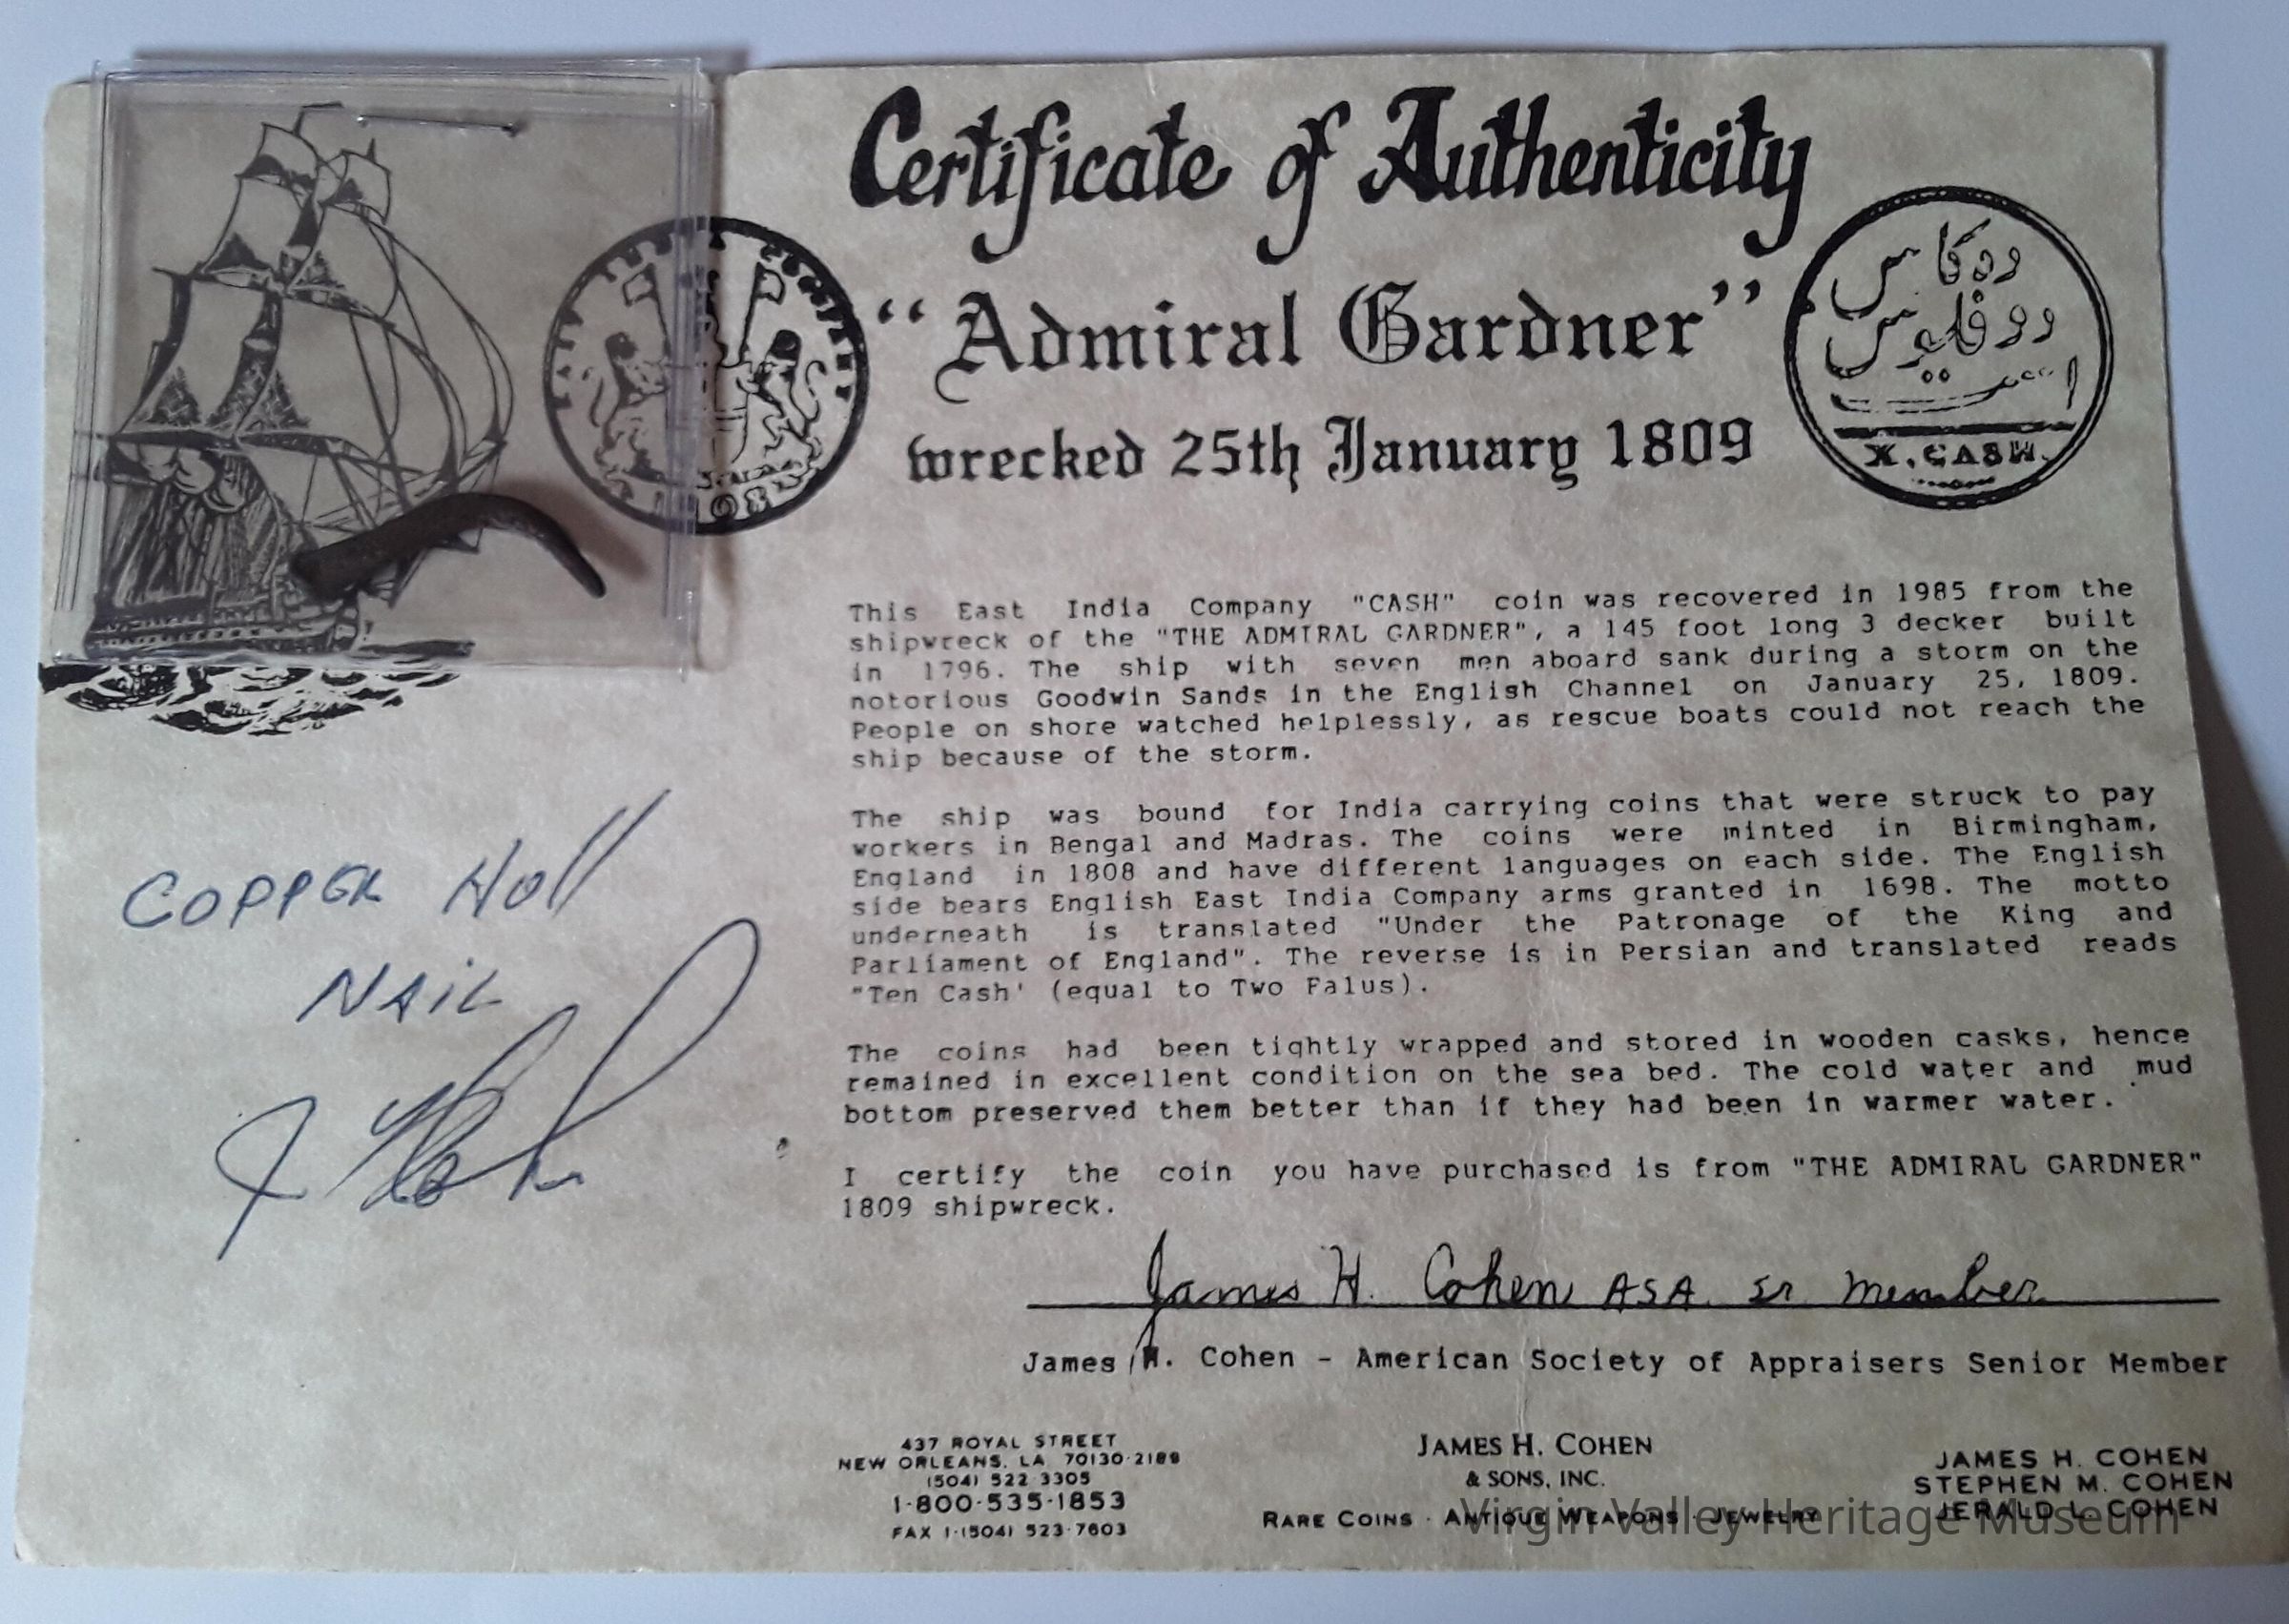 Certificate of Authenticity
"Admiral Gardner"
wrecked 25th January 1809
ده كاس
دو فلوس
است
X. CASH.
This East India Company "CASH" coin was recovered in 1985 from the
shipwreck of the "THE ADMIRAL GARDNER", a 145 foot long 3 decker built
in 1796. The ship with seven men aboard sank during a storm on the
notorious Goodwin Sands in the English Channel on January 25, 1809.
People on shore watched helplessly, as rescue boats could not reach the
ship because of the storm.
The ship was bound for India carrying coins that were struck to pay
workers in Bengal and Madras. The coins were minted in Birmingham,
England in 1808 and have different languages on each side. The English
side bears English East India Company arms granted in 1698. The motto
underneath is translated "Under the Patronage of the King and
Parliament of England". The reverse is in Persian and translated reads
"Ten Cash' (equal to Two Falus).
The coins had been tightly wrapped and stored in wooden casks, hence
remained in excellent condition on the sea bed. The cold water and mud
bottom preserved them better than if they had been in warmer water.
I certify the coin you have purchased is from "THE ADMIRAL GARDNER"
1809 shipwreck.
COPPER Hull
NAIL
James H. Cohen ASA Sr Member
James H. Cohen - American Society of Appraisers Senior Member
437 ROYAL STREET
NEW ORLEANS, LA 70130-2189
(504) 522-3305
1-800-535-1853
FAX 1-(504) 523-7603
JAMES H. COHEN
& SONS, INC.
RARE COINS · ANTIQUE WEAPONS · JEWELRY
JAMES H. COHEN
STEPHEN M. COHEN
JERALD L. COHEN
Virgin Valley Heritage Museum